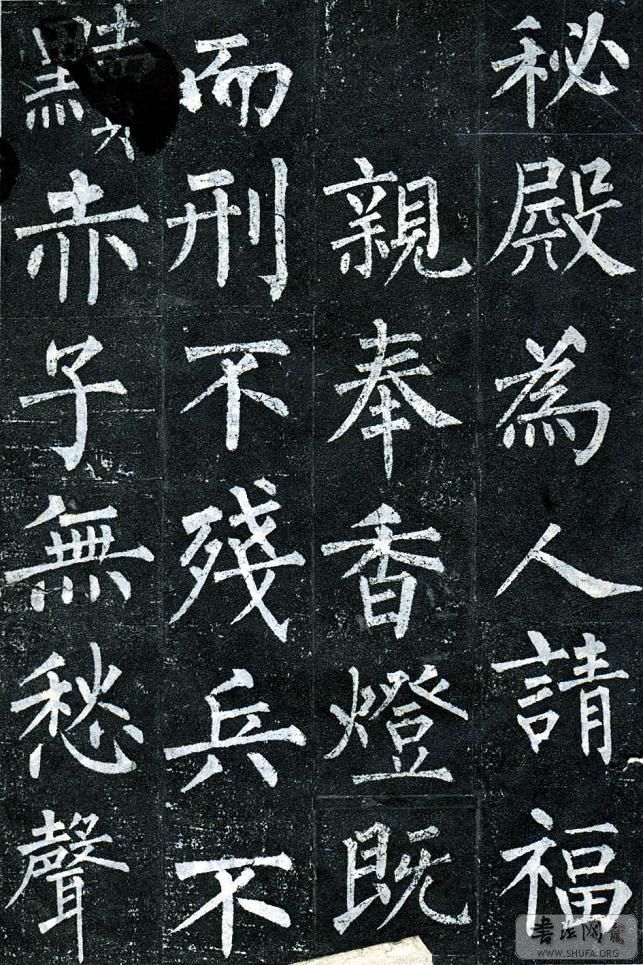 秘殿為人請福
親奉香燈既
而刑不殘兵不
黷赤子無愁聲
书法网
WWW.SHUFA.ORG